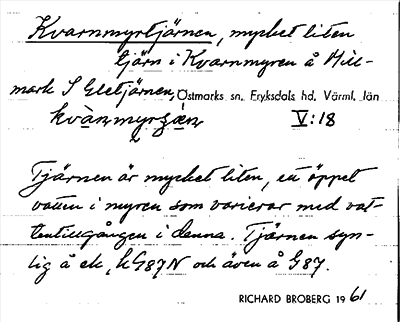 Kvarnmyrtjärnen, mycket liten
tjärn i Kvarnmyren å Hill-
mark S Gletjärnen, Östmarks sn. Fryksdals hd. Värml. län
kvànmyrʒæ̀n V:18
Tjärnen är mycket liten, en öppet
vatten i myren som varierar med vat-
tentillgången i denna. Tjärnen syn-
lig å ek, h G87N och även å G87.
RICHARD BROBERG 1961